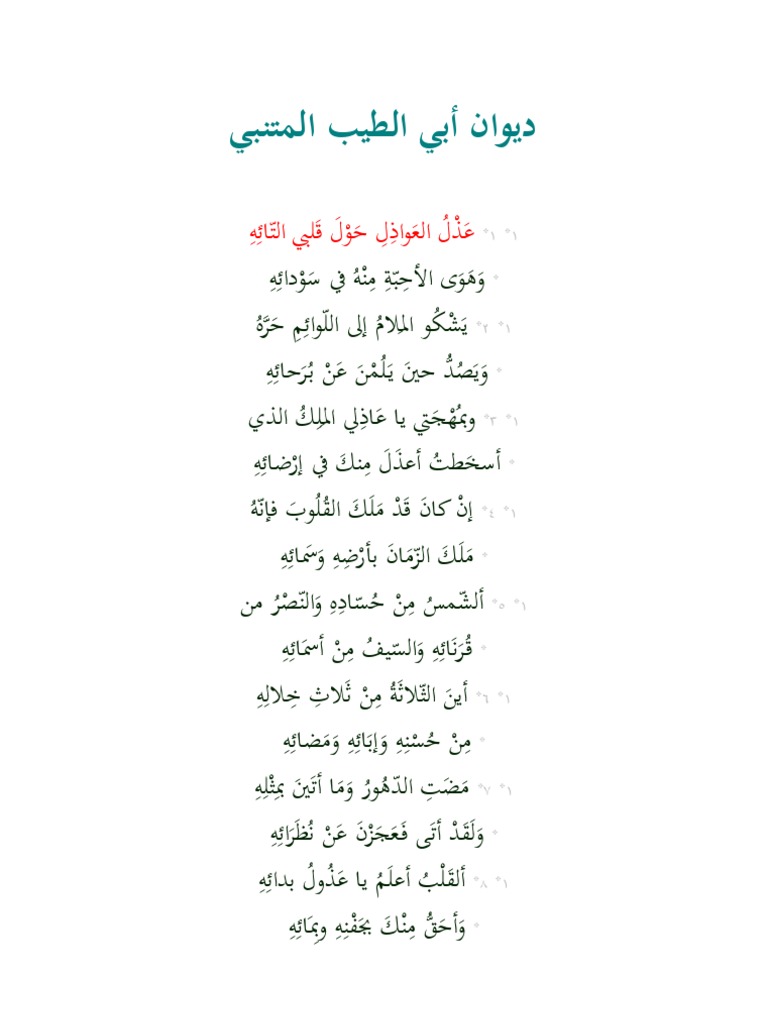 ديوان أبي الطيب المتنبي
١* ١* عَذْلُ العَواذِلِ حَوْلَ قَلبي التّائِهِ
* وَهَوَى الأحِبّةِ مِنْهُ في سَوْدائِهِ
١* ٢* يَشْكُو المَلامُ إلى اللّوائِمِ حَرَّهُ
* وَيَصُدُّ حينَ يَلُمْنَ عَنْ بُرَحائِهِ
١* ٣* وبمُهْجَتي يا عَاذِلي المَلِكُ الذي
* أسخَطتُ أعذَلَ مِنكَ في إرْضائِهِ
١* ٤* إنْ كانَ قَدْ مَلَكَ القُلُوبَ فإنّهُ
* مَلَكَ الزّمَانَ بأرْضِهِ وَسَمائِهِ
١* ٥* ألشّمسُ مِنْ حُسّادِهِ وَالنّصْرُ من
* قُرَنَائِهِ وَالسّيفُ مِنْ أسمَائِهِ
١* ٦* أينَ الثّلاثَةُ مِنْ ثَلاثِ خِلالِهِ
* مِنْ حُسْنِهِ وَإبَائِهِ وَمَضائِهِ
١* ٧* مَضَتِ الدّهُورُ وَمَا أتَينَ بمِثْلِهِ
* وَلَقَدْ أتَى فَعَجَزْنَ عَنْ نُظَرَائِهِ
١* ٨* ألقَلْبُ أعلَمُ يا عَذُولُ بدائِهِ
* وَأحَقُّ مِنْكَ بجَفْنِهِ وبِمَائِهِ